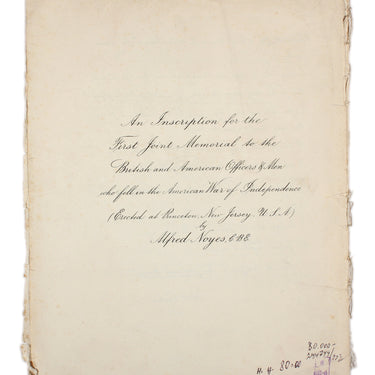 An Inscription for the
First Joint Memorial to the
British and American Officers & Men
who fell in the American War of Independence
(Erected at Princeton, New Jersey, U.S.A)
by
Alfred Noyes, C.B.E
80.000-
H # 80.00